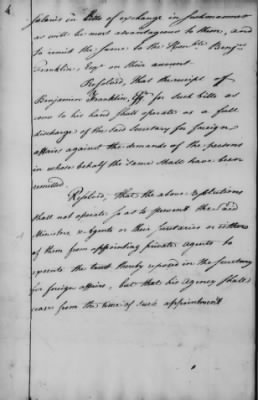 salaries in Bills of exchange in such manner
as will be most advantageous to them, and
to remit the same to the Honble Benjn
Franklin, Esqr on their account.
Resolved, That the receipt of
Benjamin Franklin, Esqr for such bills as
come to his hand shall operate as a full
discharge of the said Secretary for foreign
affairs against the demands of the persons
in whose behalf the same shall have been
remitted.
Resolved, That the above resolutions
shall not operate so as to prevent the said
Ministers & Agents or their secretaries or either
of them from appointing private agents to
execute the trust thereby reposed in the Secretary
for foreign affairs, but that his agency shall
cease from the time of such appointment